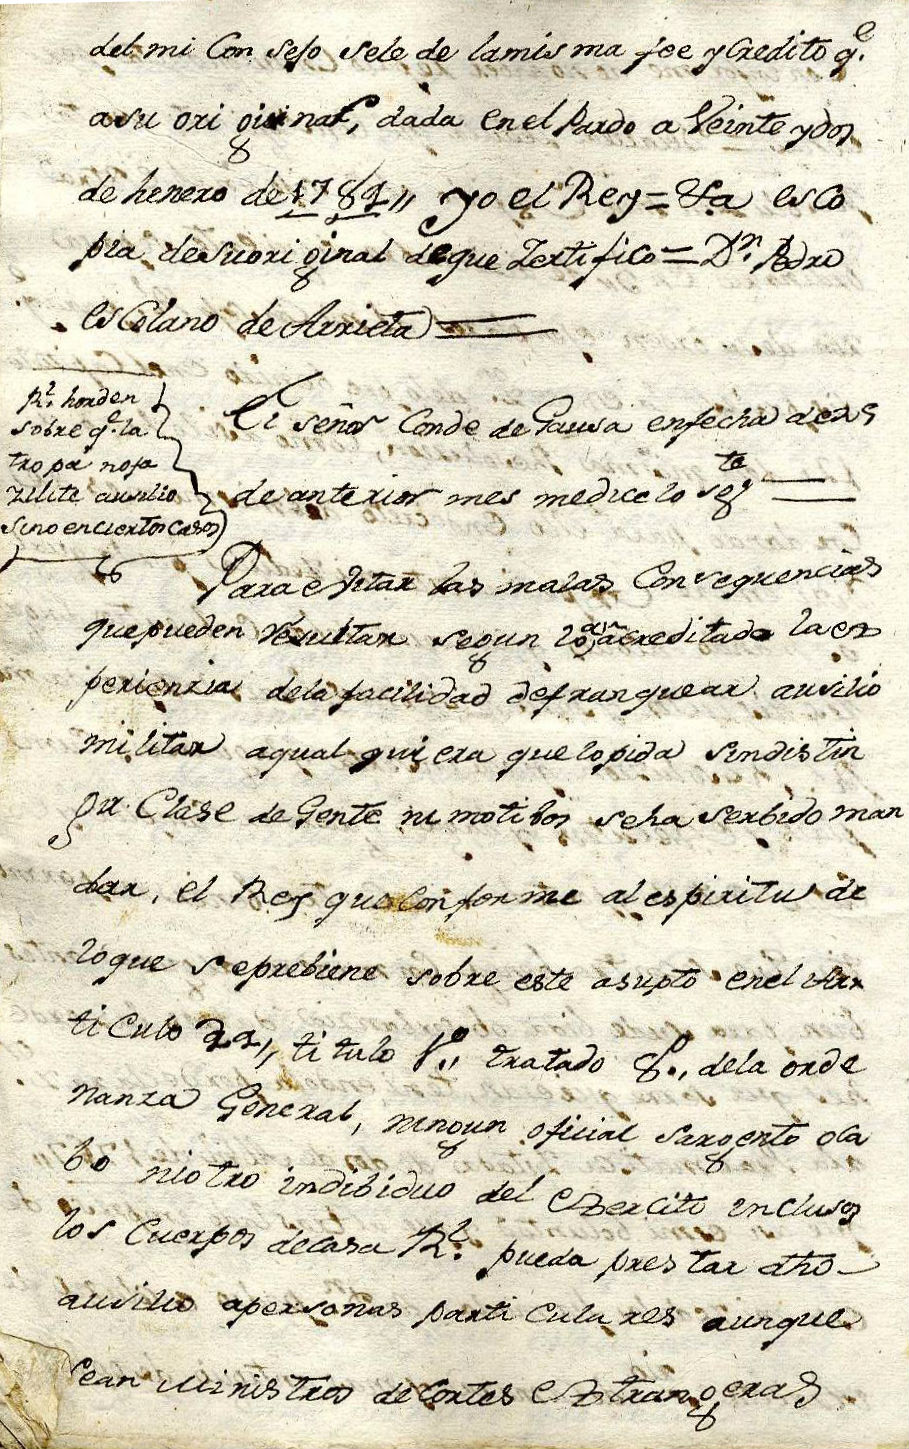 del mi Con sejo sele de lamis ma fee y Credito q.e
asu ori ginal, dada en el Pardo a Veinte y dos
de henero de 1784,, yo el Rey = Es Co
pia de su ori ginal de que Zertifico = D.n Pedro
esColano de Arrieta =
R.l horden
sobre q.e la
tropa no fa
zilite ausilio
sino en ciertos casos
El señor Conde de Gausa en fecha de 25
de anterior mes me dice lo seg.te =
Para evitar las malas Consequencias
que pueden resultar segun lo a acreditado la ex
perienzia de la facilidad de franquear ausilio
militar a qual quiera que lo pida sin distin
guir Clase de Gente ni motibos se ha serbido man
dar, el Rey que Conforme al espiritu de
lo que se prebiene sobre este asupto en el Ar
ti Culo 22, titulo 1.o,, tratado 8.o, de la orde
nanza General, ningun oficial sargento o Ca
bo ni otro indibiduo del exercito inclusos
los Cuerpos de casa R.l pueda prestar dho
ausilio a personas parti Cula res aunque
sean Ministros de Cortes extrangeras